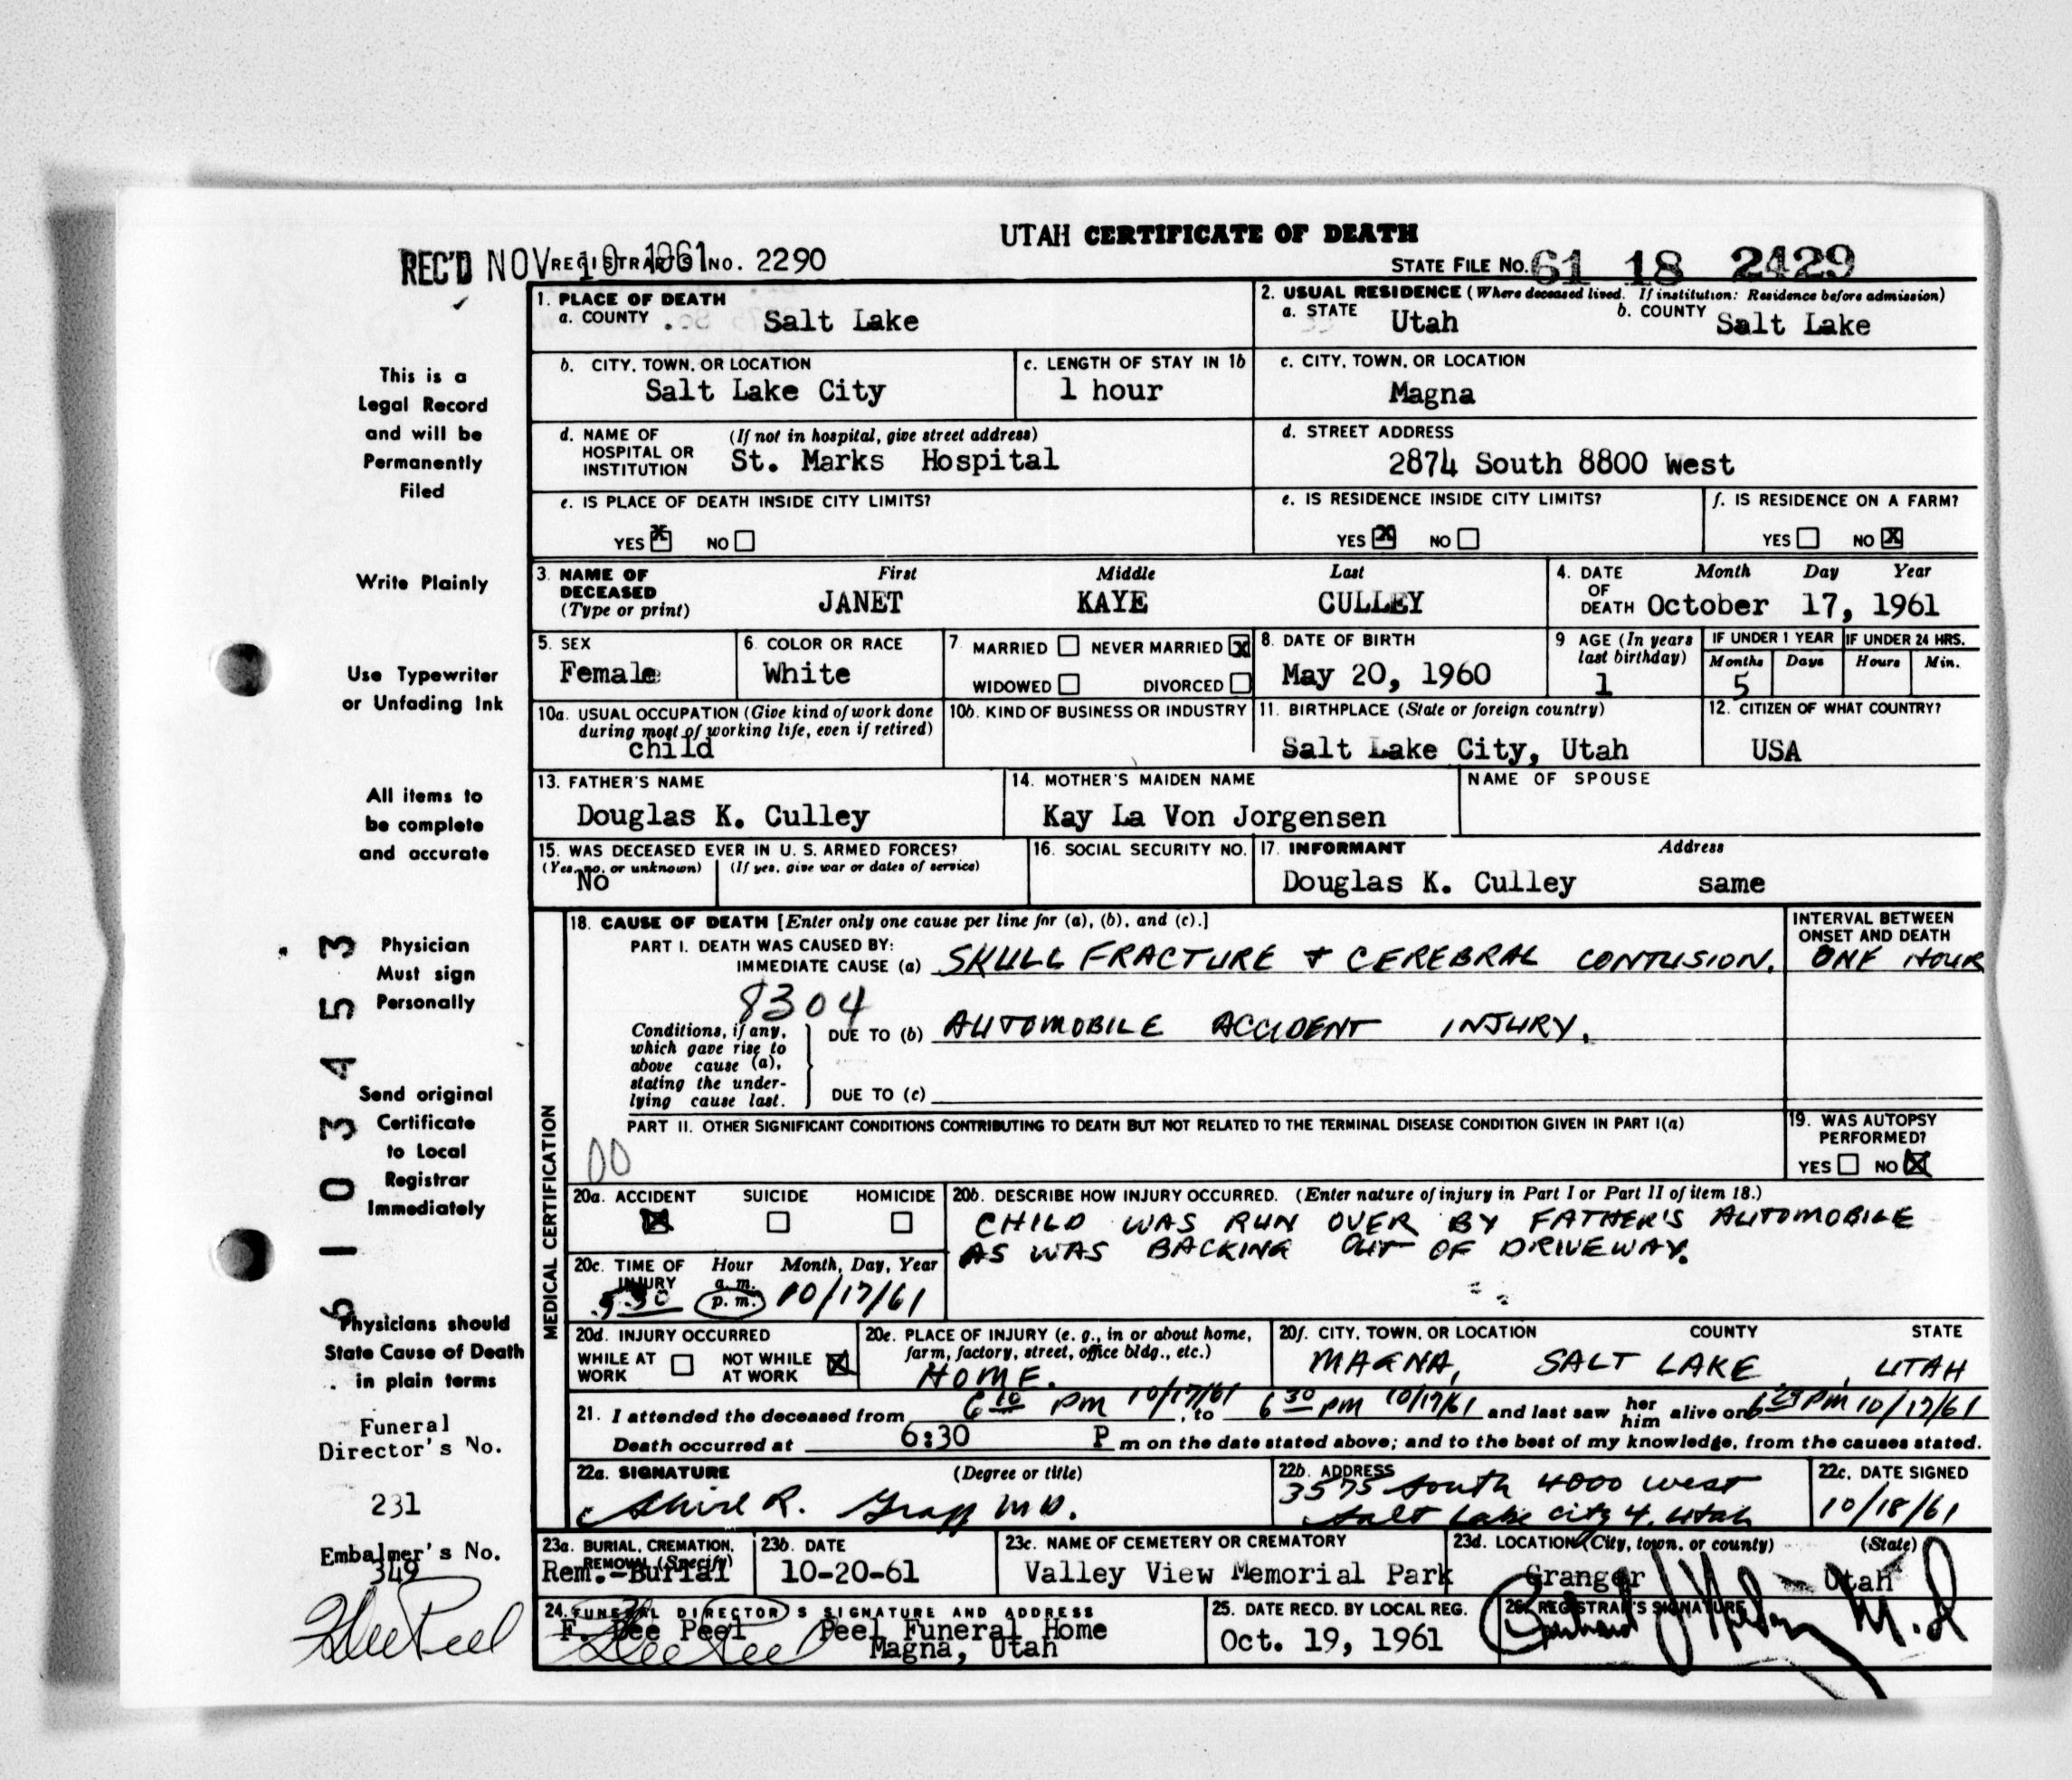 UTAH CERTIFICATE OF DEATH
REC'D NOV 10 1961 REGISTRAR'S NO. 2290
STATE FILE NO. 61 18 2429
This is a
Legal Record
and will be
Permanently
Filed
Write Plainly
Use Typewriter
or Unfading Ink
All items to
be complete
and accurate
Physician
Must sign
Personally
Send original
Certificate
to Local
Registrar
Immediately
Physicians should
State Cause of Death
in plain terms
Funeral
Director's No.
231
Embalmer's No.
349
6103453
1. PLACE OF DEATH
a. COUNTY Salt Lake
2. USUAL RESIDENCE (Where deceased lived. If institution: Residence before admission)
a. STATE Utah b. COUNTY Salt Lake
b. CITY, TOWN, OR LOCATION
Salt Lake City
c. LENGTH OF STAY IN 1b
1 hour
c. CITY, TOWN, OR LOCATION
Magna
d. NAME OF HOSPITAL OR INSTITUTION (If not in hospital, give street address)
St. Marks Hospital
d. STREET ADDRESS
2874 South 8800 West
e. IS PLACE OF DEATH INSIDE CITY LIMITS?
YES X NO
e. IS RESIDENCE INSIDE CITY LIMITS?
YES X NO
f. IS RESIDENCE ON A FARM?
YES NO X
3. NAME OF DECEASED (Type or print)
First Middle Last
JANET KAYE CULLEY
4. DATE OF DEATH Month Day Year
October 17, 1961
5. SEX
Female
6. COLOR OR RACE
White
7 MARRIED NEVER MARRIED X
WIDOWED DIVORCED
8. DATE OF BIRTH
May 20, 1960
9 AGE (In years last birthday)
1
IF UNDER 1 YEAR IF UNDER 24 HRS.
Months Days Hours Min.
5
10a. USUAL OCCUPATION (Give kind of work done during most of working life, even if retired)
child
10b. KIND OF BUSINESS OR INDUSTRY
11. BIRTHPLACE (State or foreign country)
Salt Lake City, Utah
12. CITIZEN OF WHAT COUNTRY?
USA
13. FATHER'S NAME
Douglas K. Culley
14. MOTHER'S MAIDEN NAME
Kay La Von Jorgensen
NAME OF SPOUSE
15. WAS DECEASED EVER IN U. S. ARMED FORCES?
(Yes, no, or unknown) (If yes, give war or dates of service)
No
16. SOCIAL SECURITY NO.
17. INFORMANT Address
Douglas K. Culley same
MEDICAL CERTIFICATION
18. CAUSE OF DEATH [Enter only one cause per line for (a), (b), and (c).]
PART I. DEATH WAS CAUSED BY:
IMMEDIATE CAUSE (a) SKULL FRACTURE + CEREBRAL CONTUSION.
INTERVAL BETWEEN ONSET AND DEATH
ONE HOUR
8304
Conditions, if any, which gave rise to above cause (a), stating the underlying cause last.
DUE TO (b) AUTOMOBILE ACCIDENT INJURY.
DUE TO (c)
PART II. OTHER SIGNIFICANT CONDITIONS CONTRIBUTING TO DEATH BUT NOT RELATED TO THE TERMINAL DISEASE CONDITION GIVEN IN PART I(a)
00
19. WAS AUTOPSY PERFORMED?
YES NO X
20a. ACCIDENT SUICIDE HOMICIDE
X
20b. DESCRIBE HOW INJURY OCCURRED. (Enter nature of injury in Part I or Part II of item 18.)
CHILD WAS RUN OVER BY FATHER'S AUTOMOBILE
AS WAS BACKING OUT OF DRIVEWAY.
20c. TIME OF INJURY Hour Month, Day, Year
5:30 a. m. p. m. 10/17/61
20d. INJURY OCCURRED
WHILE AT WORK NOT WHILE AT WORK X
20e. PLACE OF INJURY (e. g., in or about home, farm, factory, street, office bldg., etc.)
HOME.
20f. CITY, TOWN, OR LOCATION COUNTY STATE
MAGNA, SALT LAKE, UTAH
21. I attended the deceased from 6 10 PM 10/17/61, to 6 30 PM 10/17/61 and last saw her him alive on 6 29 PM 10/17/61
Death occurred at 6:30 P m on the date stated above; and to the best of my knowledge, from the causes stated.
22a. SIGNATURE (Degree or title)
Shirl R. Graff M.D.
22b. ADDRESS
3575 South 4000 West
Salt Lake City 4, Utah
22c. DATE SIGNED
10/18/61
23a. BURIAL, CREMATION, REMOVAL (Specify)
Rem.-Burial
23b. DATE
10-20-61
23c. NAME OF CEMETERY OR CREMATORY
Valley View Memorial Park
23d. LOCATION (City, town, or county) (State)
Granger Utah
24. FUNERAL DIRECTOR'S SIGNATURE AND ADDRESS
F. Dee Peel Peel Funeral Home
Magna, Utah
25. DATE RECD. BY LOCAL REG.
Oct. 19, 1961
26. REGISTRAR'S SIGNATURE
M.D